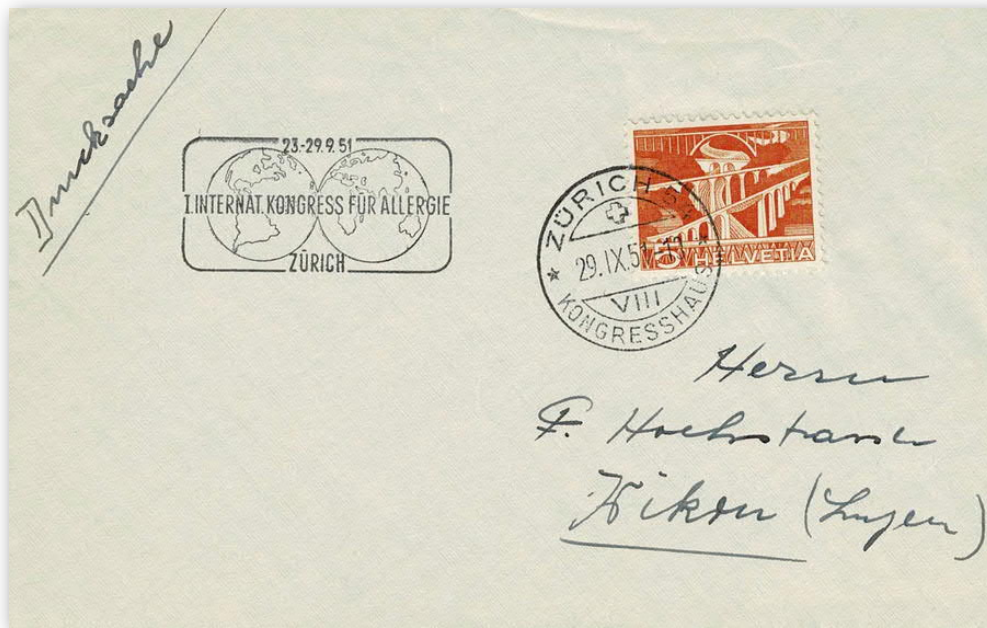 Drucksache
23-29.9.51
I. INTERNAT. KONGRESS FÜR ALLERGIE
ZÜRICH
ZÜRICH
29.IX.51
VIII
KONGRESSHAUS
5 HELVETIA
Herrn
F. Hochstrasser
Wikon (Luzern)